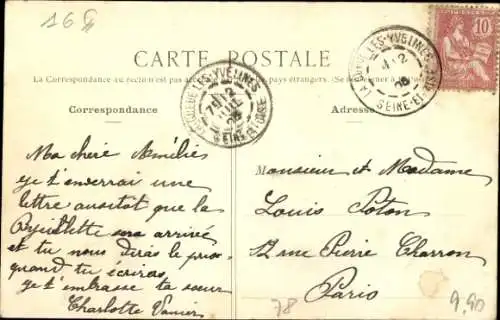 16
CARTE POSTALE
La Correspondance au recto n'est pas acceptée pays étrangers. (Se renseigner
LA QUEUE LES-YVELINES
SEINE-ET-OISE
LA QUEUE LES-YVELINES
SEINE-ET-OISE
10
Correspondance
Adresse
Ma chère Amélie
je t'enverrai une
lettre aussitot que la
sera arrivé
et tu nous diras le prix
quand tu écriras
je t'embrasse ta soeur
Charlotte
Monsieur et Madame
Louis Poton
12 rue Pierre Charron
Paris
78
9,90